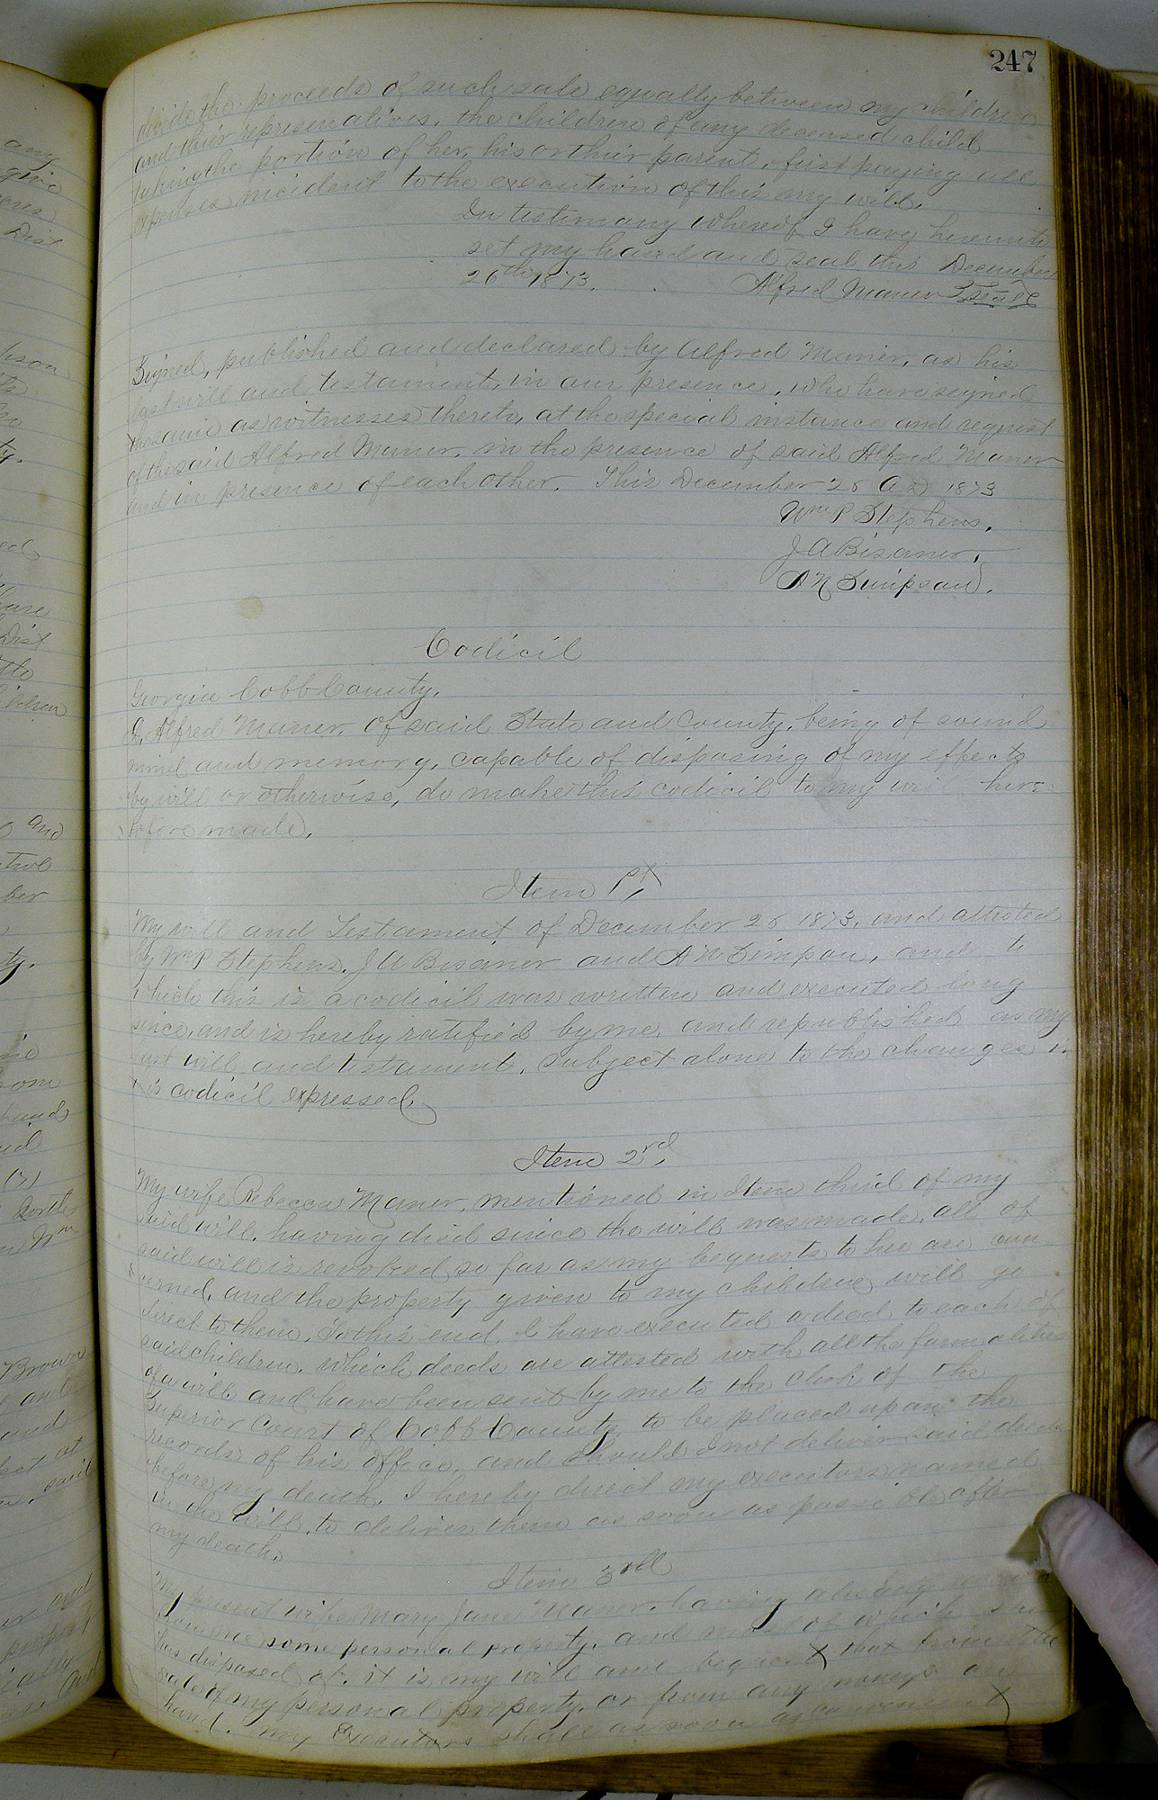 247
divide the proceeds of such sale equally between my children
and their representatives, the children of any deceased child
taking the portion of her, his or their parent, first paying all
expenses incident to the execution of this my will.
In testimony whereof I have hereunto
set my hand and seal this December
26th 1873. Alfred Maner Seal
Signed, published and declared by Alfred Maner, as his
last will and testament, in our presence, who have signed
the same as witnesses thereto, at the special instance and request
of the said Alfred Maner, in the presence of said Alfred Maner
and in presence of each other. This December 26 A.D 1873
Wm P Stephens,
J A Bisaner,
A N Simpson.
Codicil
Georgia Cobb County.
I, Alfred Maner, of said State and County, being of sound
mind and memory, capable of disposing of my effects
by will or otherwise, do make this codicil to my here
tofore made.
Item 1st,
My will and Testament of December 26 1873, and attested
by Wm P Stephens, J A Bisaner and A N Simpson, and to
which this is a codicil was written and executed long
since, and is hereby ratified by me, and republished as my
last will and testament, subject alone to the changes in
this codicil expressed.
Item 2rd,
My wife Rebecca Maner, mentioned in Item third of my
said will, having died since the will was made, all of
said will is revoked, so far as my bequests to her are con
cerned, and the property given to my children will go
direct to them, To this end, I have executed a deed to each of
said children, which deeds are attested with all the formalities
of a will and have been sent by me to the clerk of the
Superior Court of Cobb County, to be placed upon the
records of his office, and should I not deliver said deeds
before my death, I hereby direct my executors named
in the will, to deliver them as soon as possible after
my death.
Item 3rd
My present wife Mary Jane Maner, having already
some personal property, and most of which she
has disposed of, it is my will and bequest that from the
sale of my personal property, or from any moneys on
hand, my Executors shall as soon as convenient